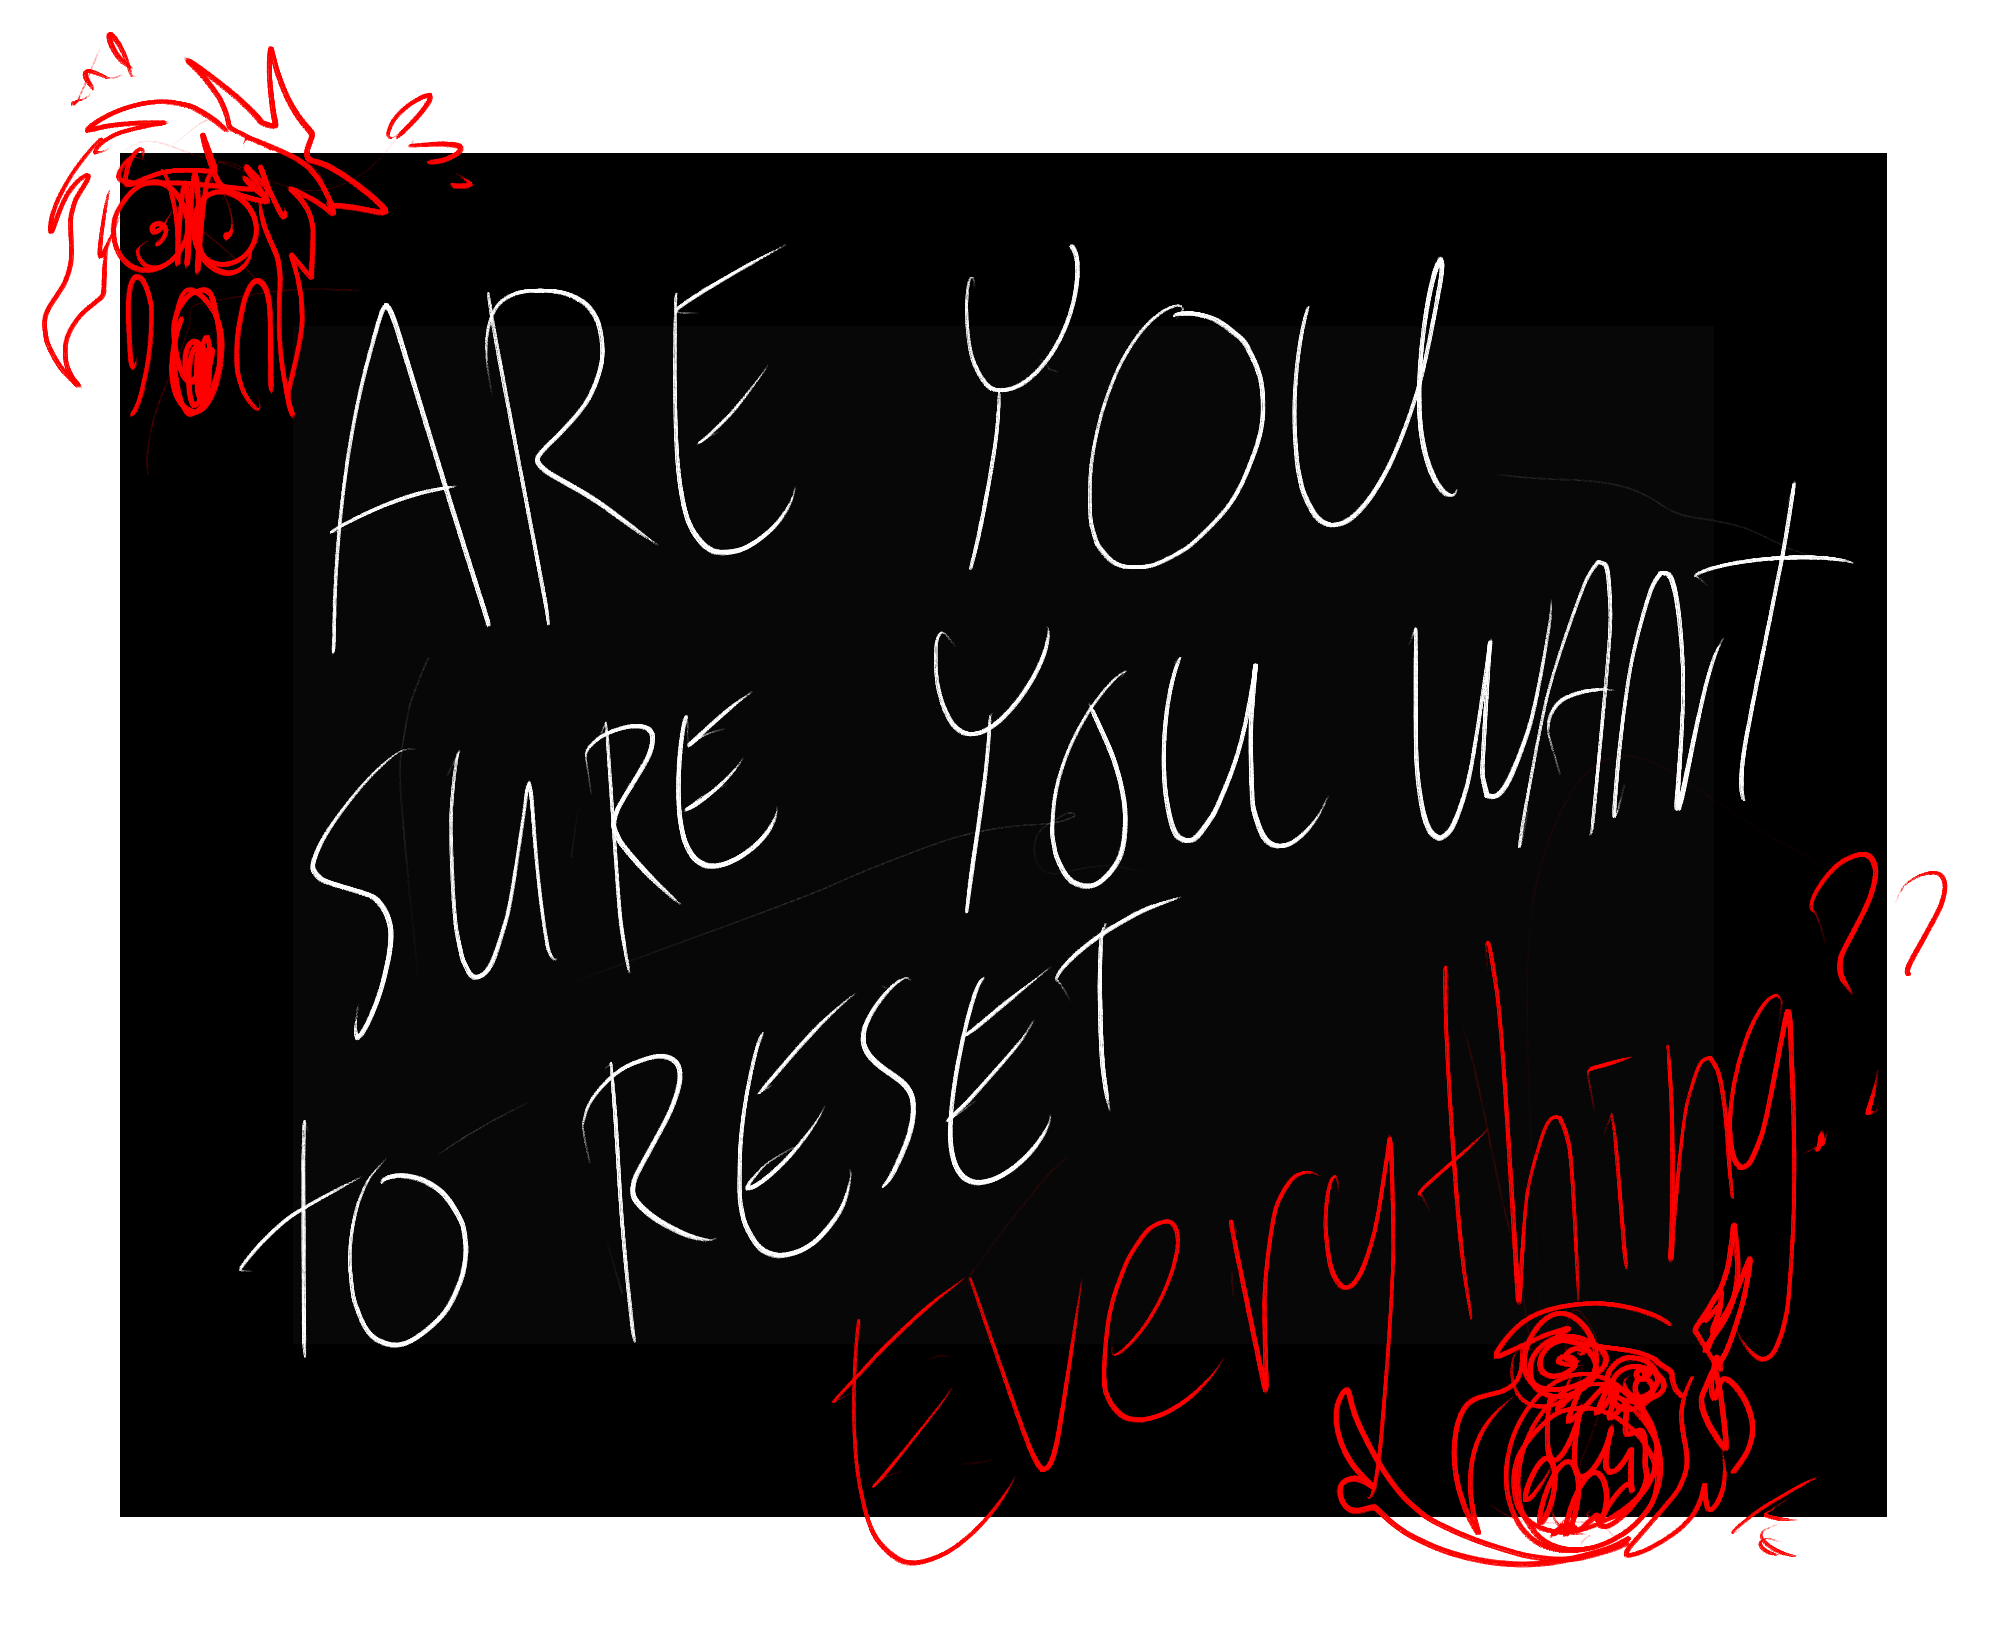 ARE YOU
SURE YOU WANT
to RESET
Everything..??